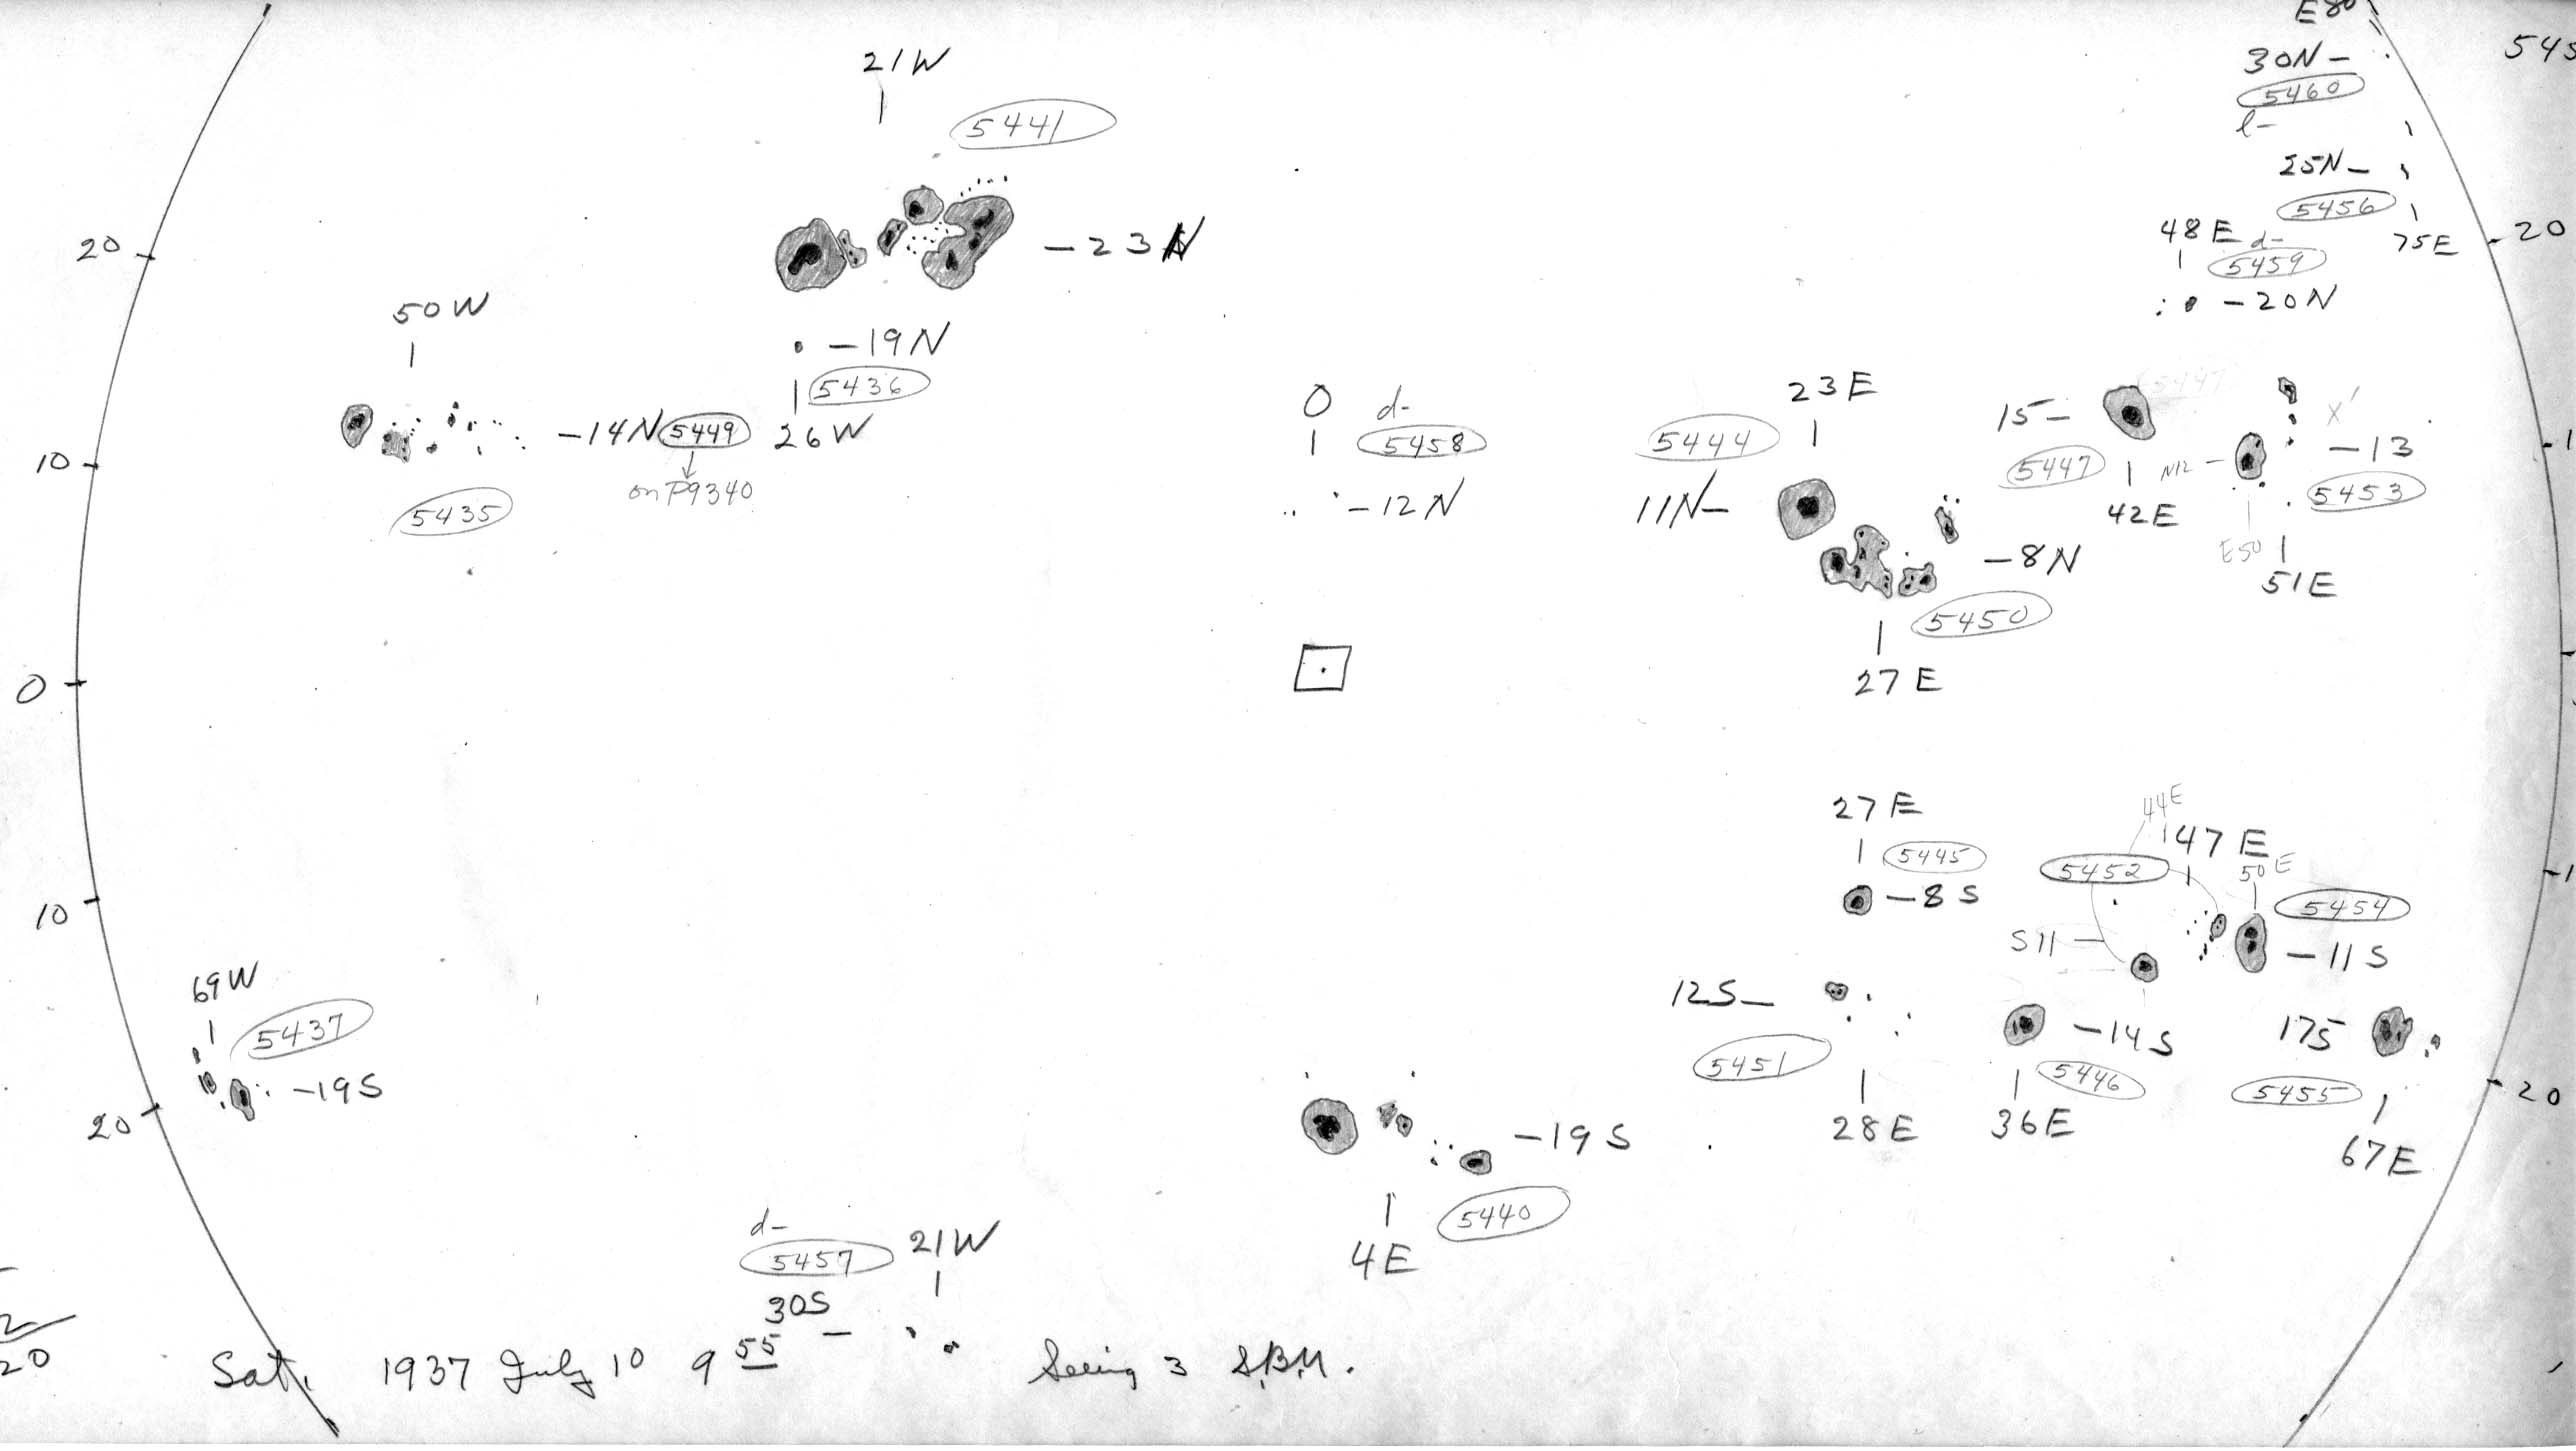 E80
30N –
5460
l –
545
21W
5441
25N –
5456
75E
20
– 23N
48E
d –
5459
– 20N
20
50W
– 19N
5436
26W
– 14N
5449
on P9340
5435
10
0
d –
5458
– 12N
23E
5444
11N –
15 –
5447
5447
42E
N12 –
x'
– 13
5453
E50
51E
1
– 8N
5450
27E
0
27E
5445
– 8S
44E
47E
5452
50E
5454
S11 –
– 11S
1
10
69W
5437
– 19S
20
12S –
5451
28E
– 14S
5446
36E
17S
5455
67E
20
– 19S
5440
4E
d –
5457
21W
30S –
20
Sat. 1937 July 10 9 55 Seeing 3 S.B.N.